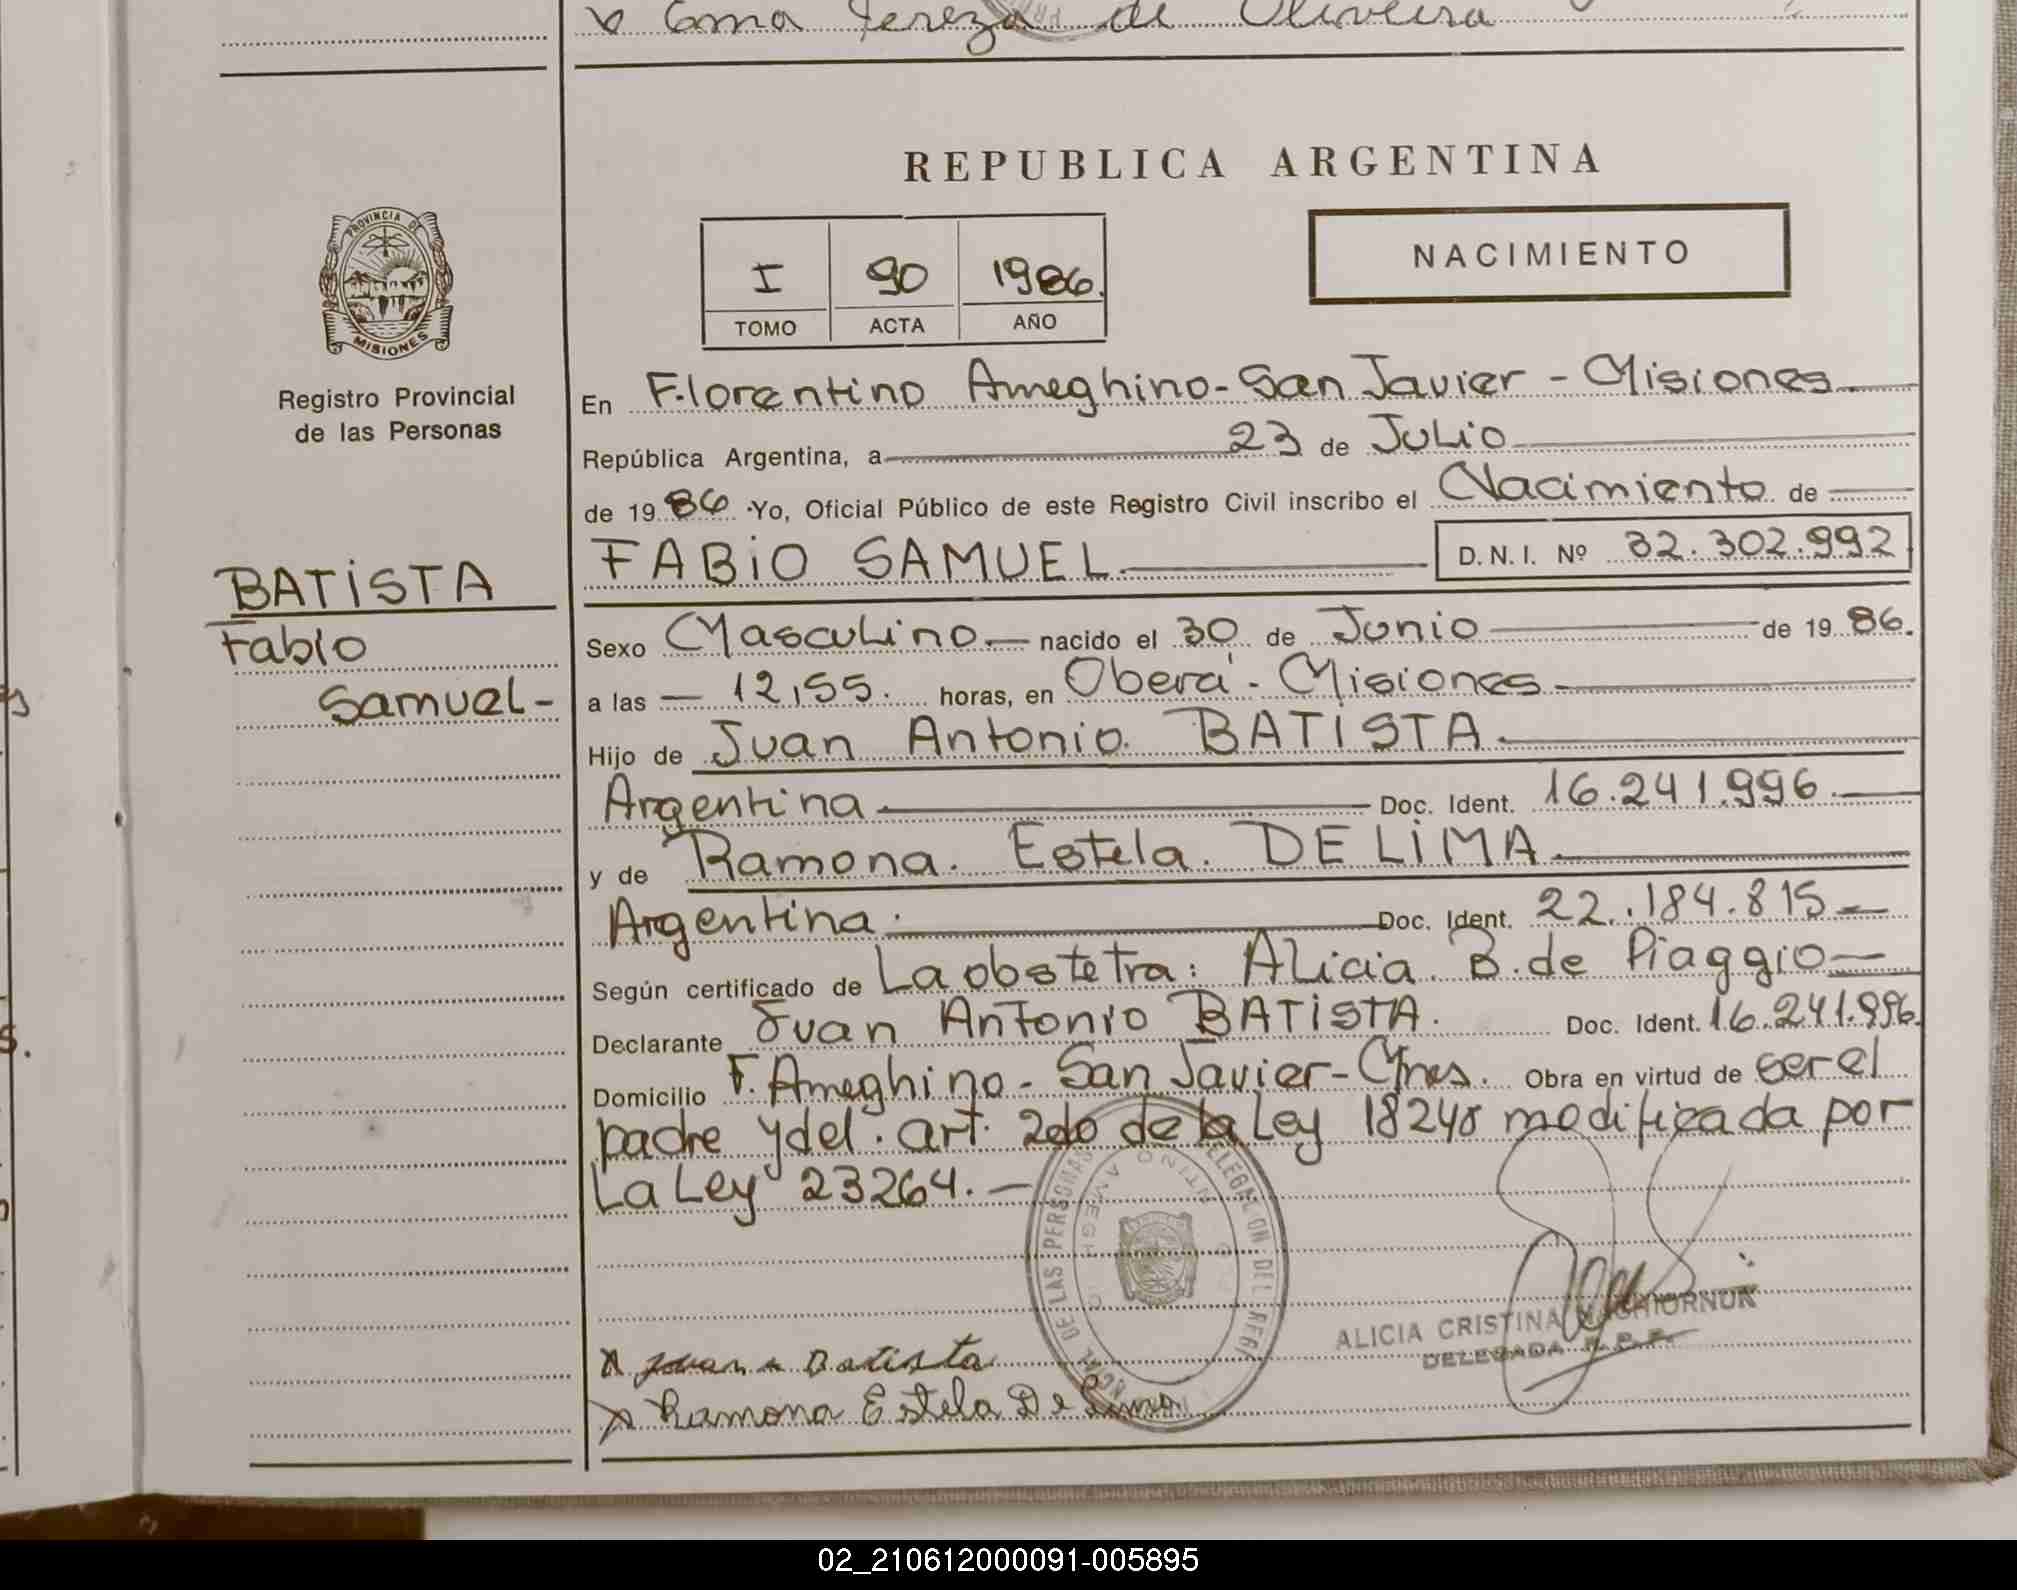 Tereza de Oliveira
REPUBLICA ARGENTINA
PROVINCIA DE
MISIONES
Registro Provincial
de las Personas
I 90 1986.
TOMO ACTA AÑO
NACIMIENTO
En Florentino Ameghino - San Javier - Misiones
República Argentina, a 23 de Julio
de 1986 Yo, Oficial Público de este Registro Civil inscribo el Nacimiento de
FABIO SAMUEL D.N.I. Nº 32.302.992
BATISTA
Fabio
Samuel -
Sexo Masculino nacido el 30 de Junio de 1986.
a las 12,55. horas, en Oberá - Misiones
Hijo de Juan Antonio BATISTA
Argentina Doc. Ident. 16.241.996
y de Ramona. Estela. DE LIMA
Argentina. Doc. Ident. 22.184.815
Según certificado de La obstetra: Alicia B. de Piaggio
Declarante Juan Antonio BATISTA. Doc. Ident. 16.241.996
Domicilio F. Ameghino - San Javier - Mnes. Obra en virtud de ser el
padre y del. art. 2do de la Ley 18248 modificada por
La Ley 23264. -
DE LAS PERSONAS
AMEGHINO
x Juan A Batista
x Ramona Estela De Lima
ALICIA CRISTINA
DELEGADA R.P.P.
02_210612000091-005895